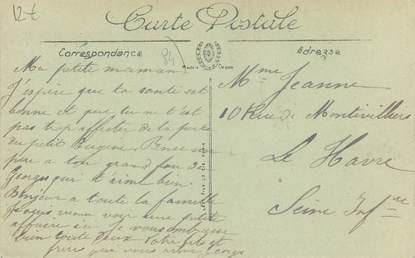 12-t
Carte Postale
Correspondance
84
Adresse
Ma petite maman
J'espère que ta santé est
bonne et que tu n t'est
pas trop affecter de la perte
du petit Eugène. Pense un
peu a ton grand fou de
Georges qui t'aime bien.
Bonjour a toute la famille
une petite
je vous embrasse
bien toute deux votre fils et
frère que vous aime
Mme Jeanne
10 Rue de Montivilliers
Le Havre
Seine Infre